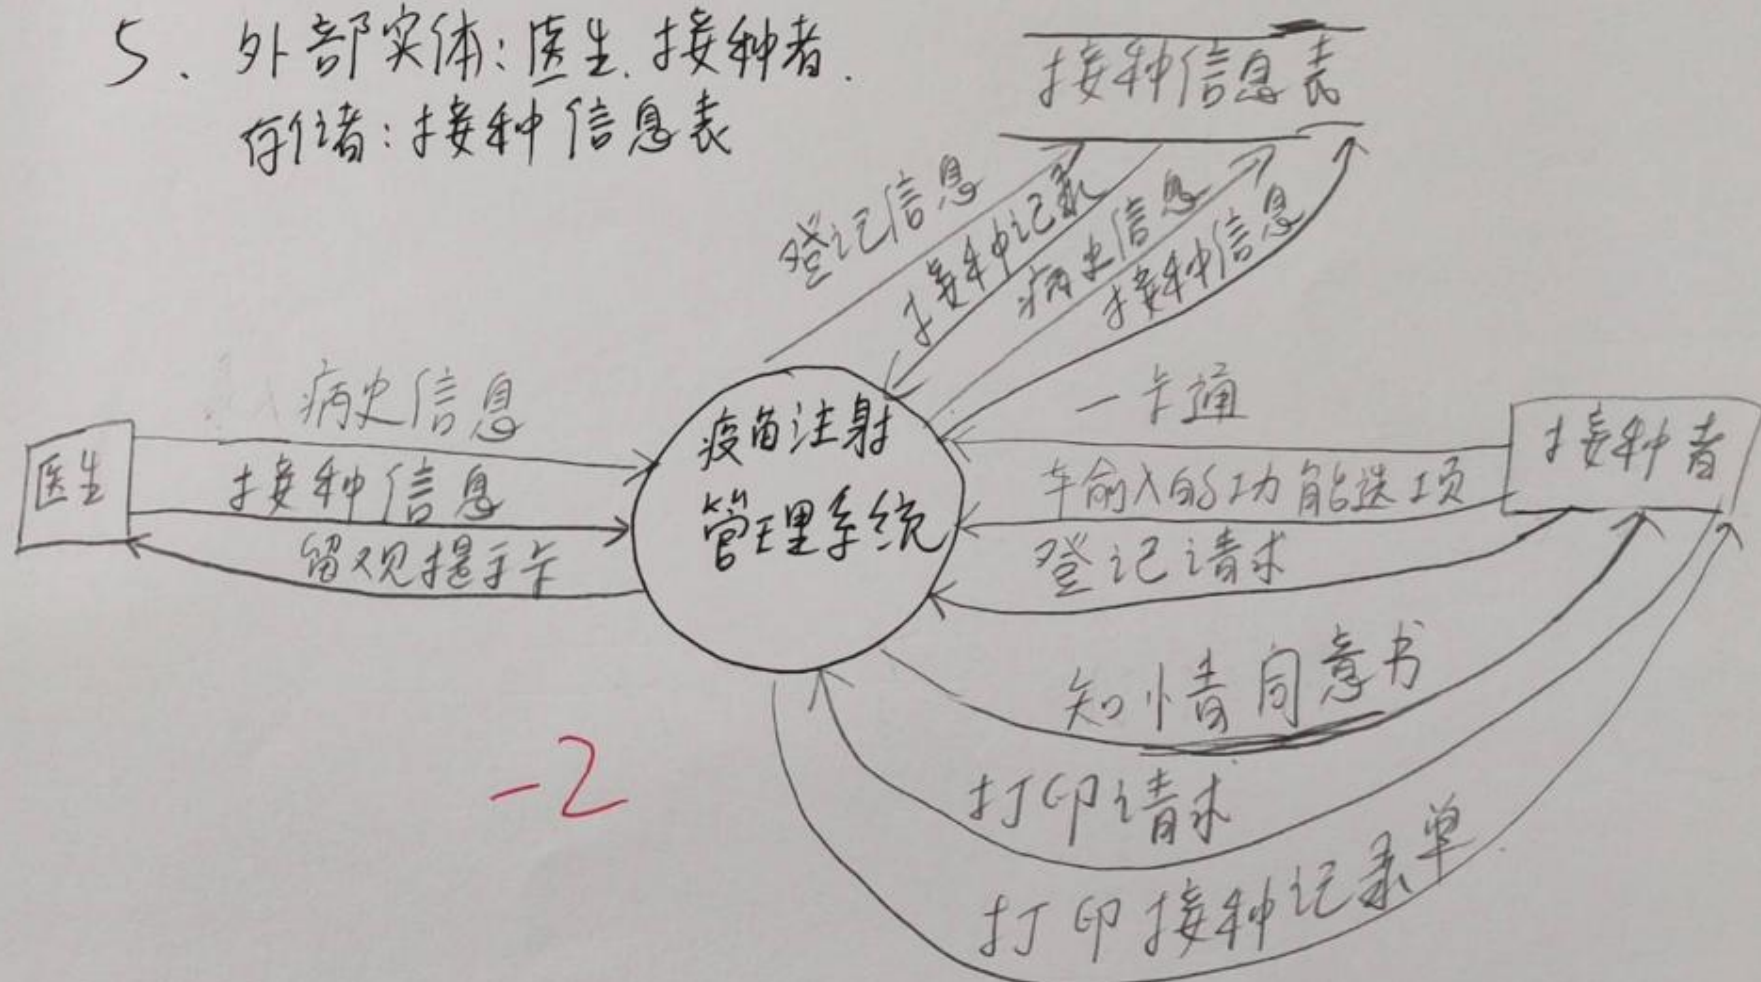 5、外部实体:医生、接种者.
存储者:接种信息表
接种信息表
登记信息
接种记录
病史信息
接种信息
病史信息
接种信息
留观提示卡
医生
疫苗注射
管理系统
一卡通
输入的功能选项
登记请求
接种者
知情同意书
打印请求
打印接种记录单
-2